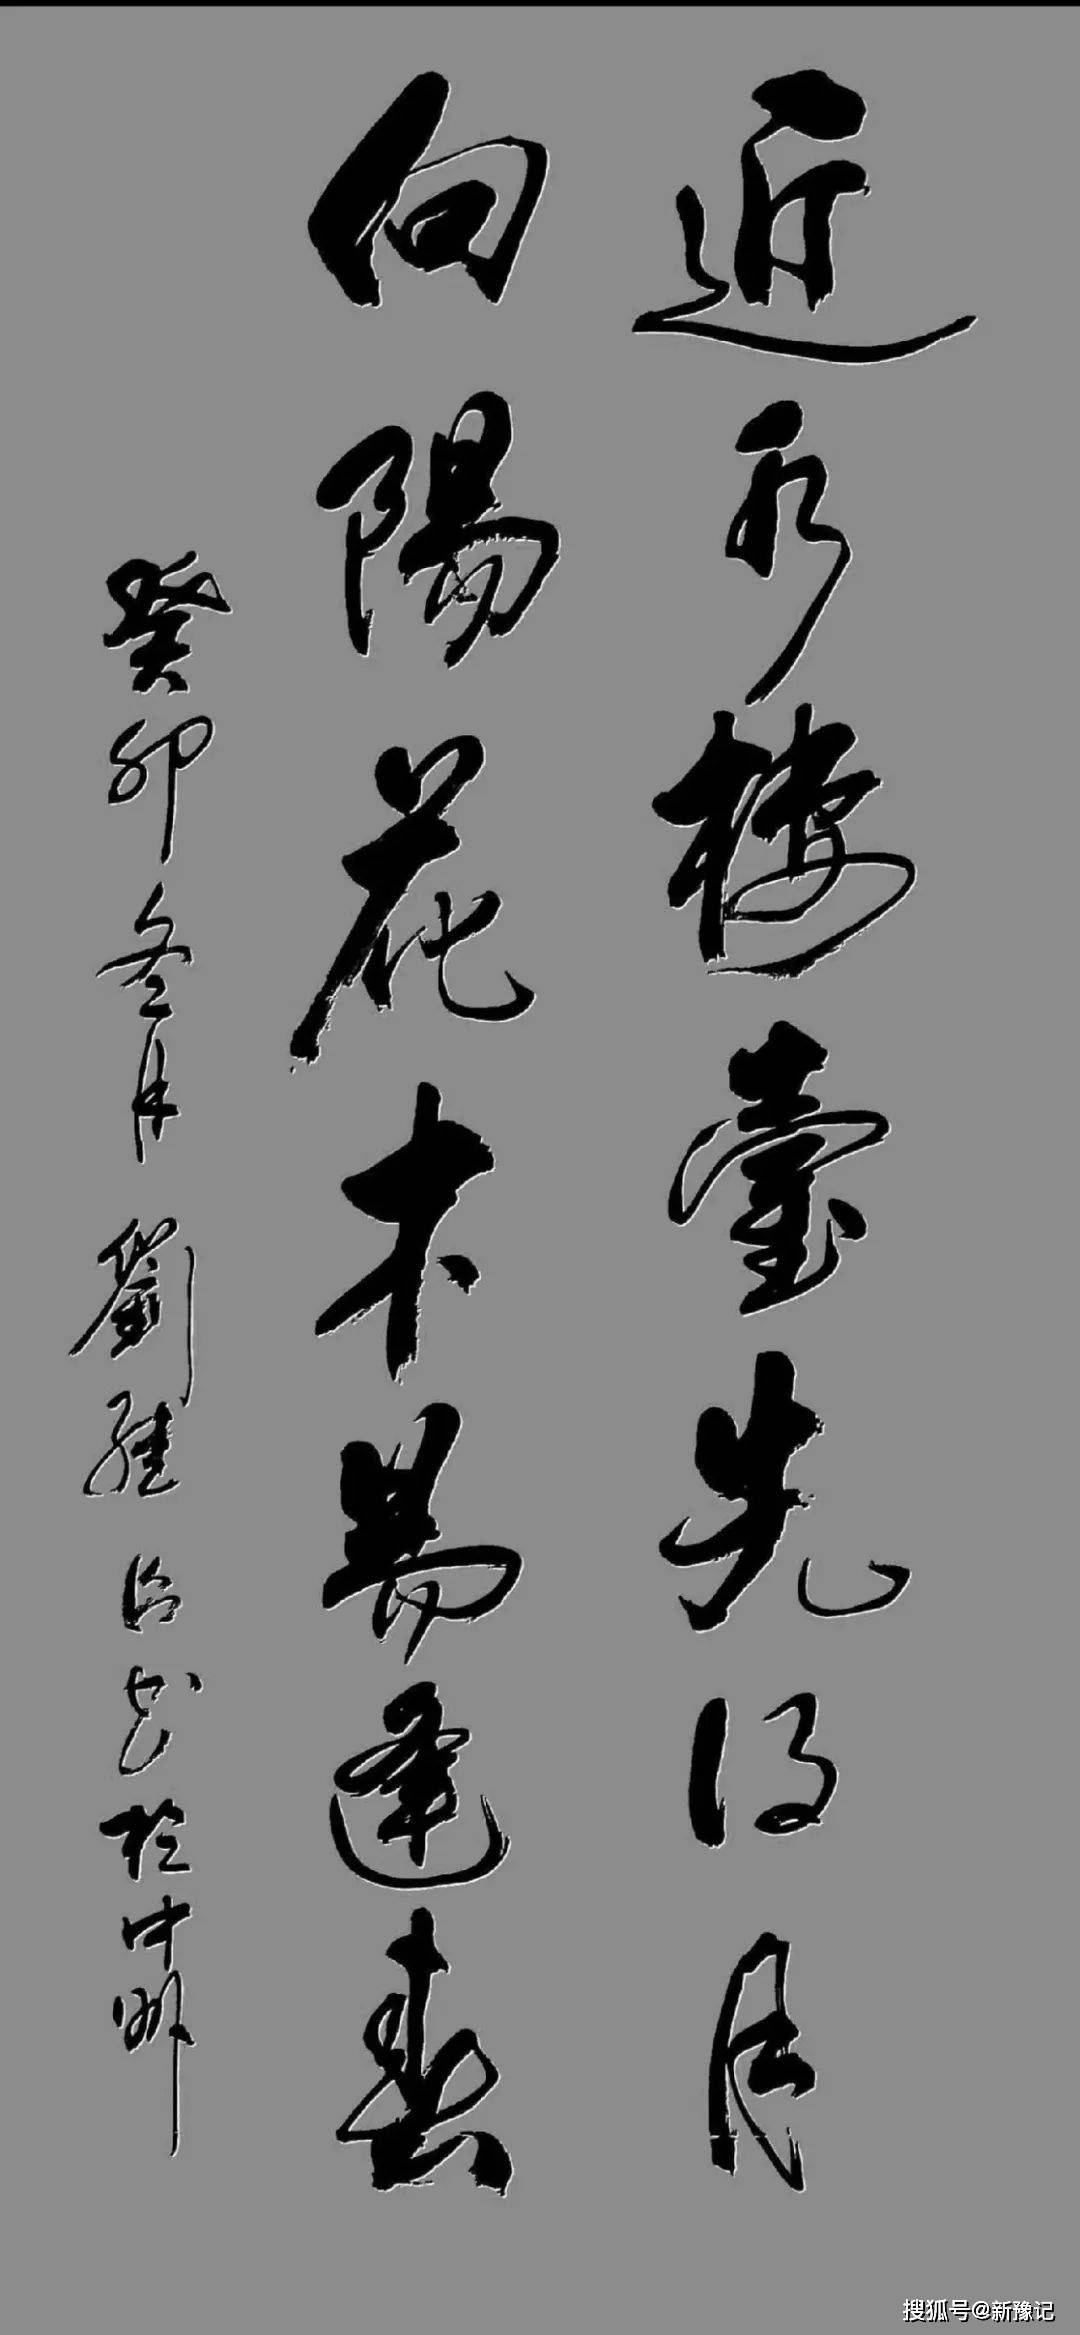 近水楼臺先得月
向陽花木易逢春
癸卯冬月 劉 於中州
搜狐号@新豫记